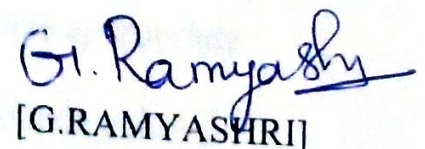 G. Ramyashri
[G.RAMYASHRI]